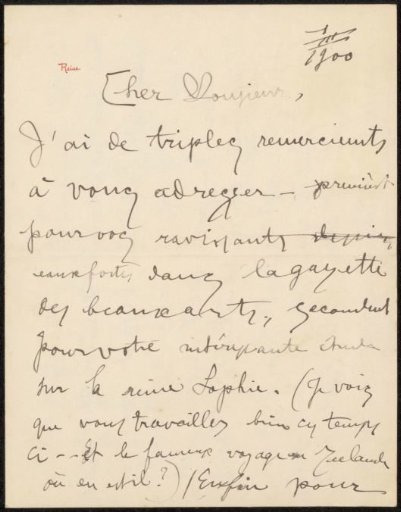 1900
Cher Monsieur,
J'ai de triples remerciements
à vous adresser – premièrt
pour vos ravissants
eaux fortes dans la gazette
des beaux arts, secondent
pour votre intéressante étude
sur la reine Sophie. (Je vois
que vous travaillez bien ces temps
ci – Et le fameux voyage en Zeelande
où en est il?) / Enfin pour